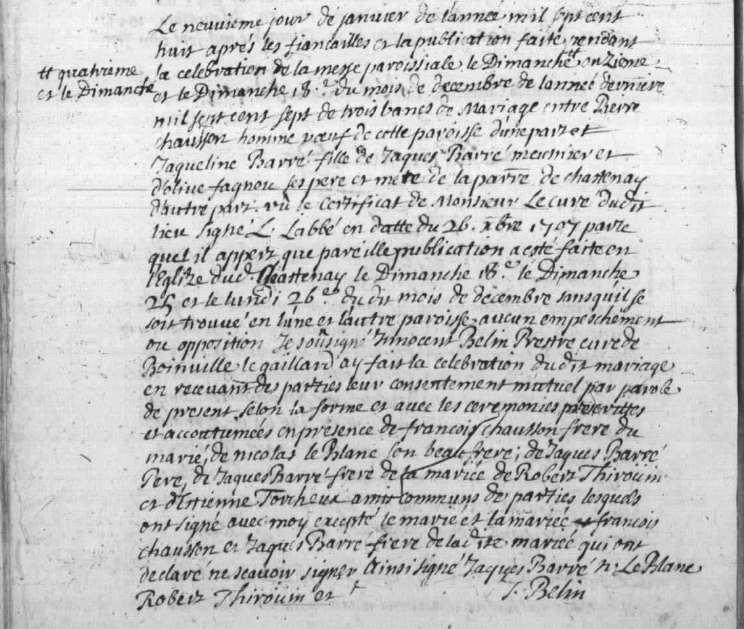 Le neuvieme jour de janvier de lannee mil sept cent
huit aprés les fiancailles et la publication faite pendant
tt quatrieme
et le Dimanche
la celebration de la messe paroissiale le Dimanche tt onzieme
et le Dimanche 18.e du mois de decembre de lanneé derniere
mil sept cent sept de trois bancs de Mariage entre Pierre
chausson homme vœuf de cette paroisse dune part et
Jaqueline Barré fille de Jaques Barré meusnier et
dolive fagnou ses pere et mere de la parr̃e de chastenay
dautre part. vû le certificat de Monsieur Le curé dudit
lieu signé L. Labbé en datte du 26. xbre 1707 par le
quel il appert que pareille publication a esté faite en
leglize dud. Chastenay le Dimanche 18.e le Dimanche
25 et le lundi 26.e du dit mois de decembre sans quil se
soit trouvé en lune et lautre paroisse aucun empeschement
ou opposition Je sousigné Innocent Belin Prestre curé de
Boinville le gaillard ay fait la celebration du dit mariage
en recevant des parties leur consentement mutuel par parole
de present, selon la forme et avec les ceremonies prescrittes
et accoutumées en presence de francois chausson frere du
marié, de nicolas le Blanc son beau frere, de Jaques Barré
Pere, de Jaques Barré frere de la mariée de Robert Thirouin
et dEstienne Torcheux amis communs de parties lesquels
ont signé avec moy excepté le marié et la mariée francois
chausson et Jaques Barré frere de ladite mariée qui ont
declaré ne scavoir signer Ainsi signé Jaques Barré n. Le Blanc
Robert Thirouin et J. Belin